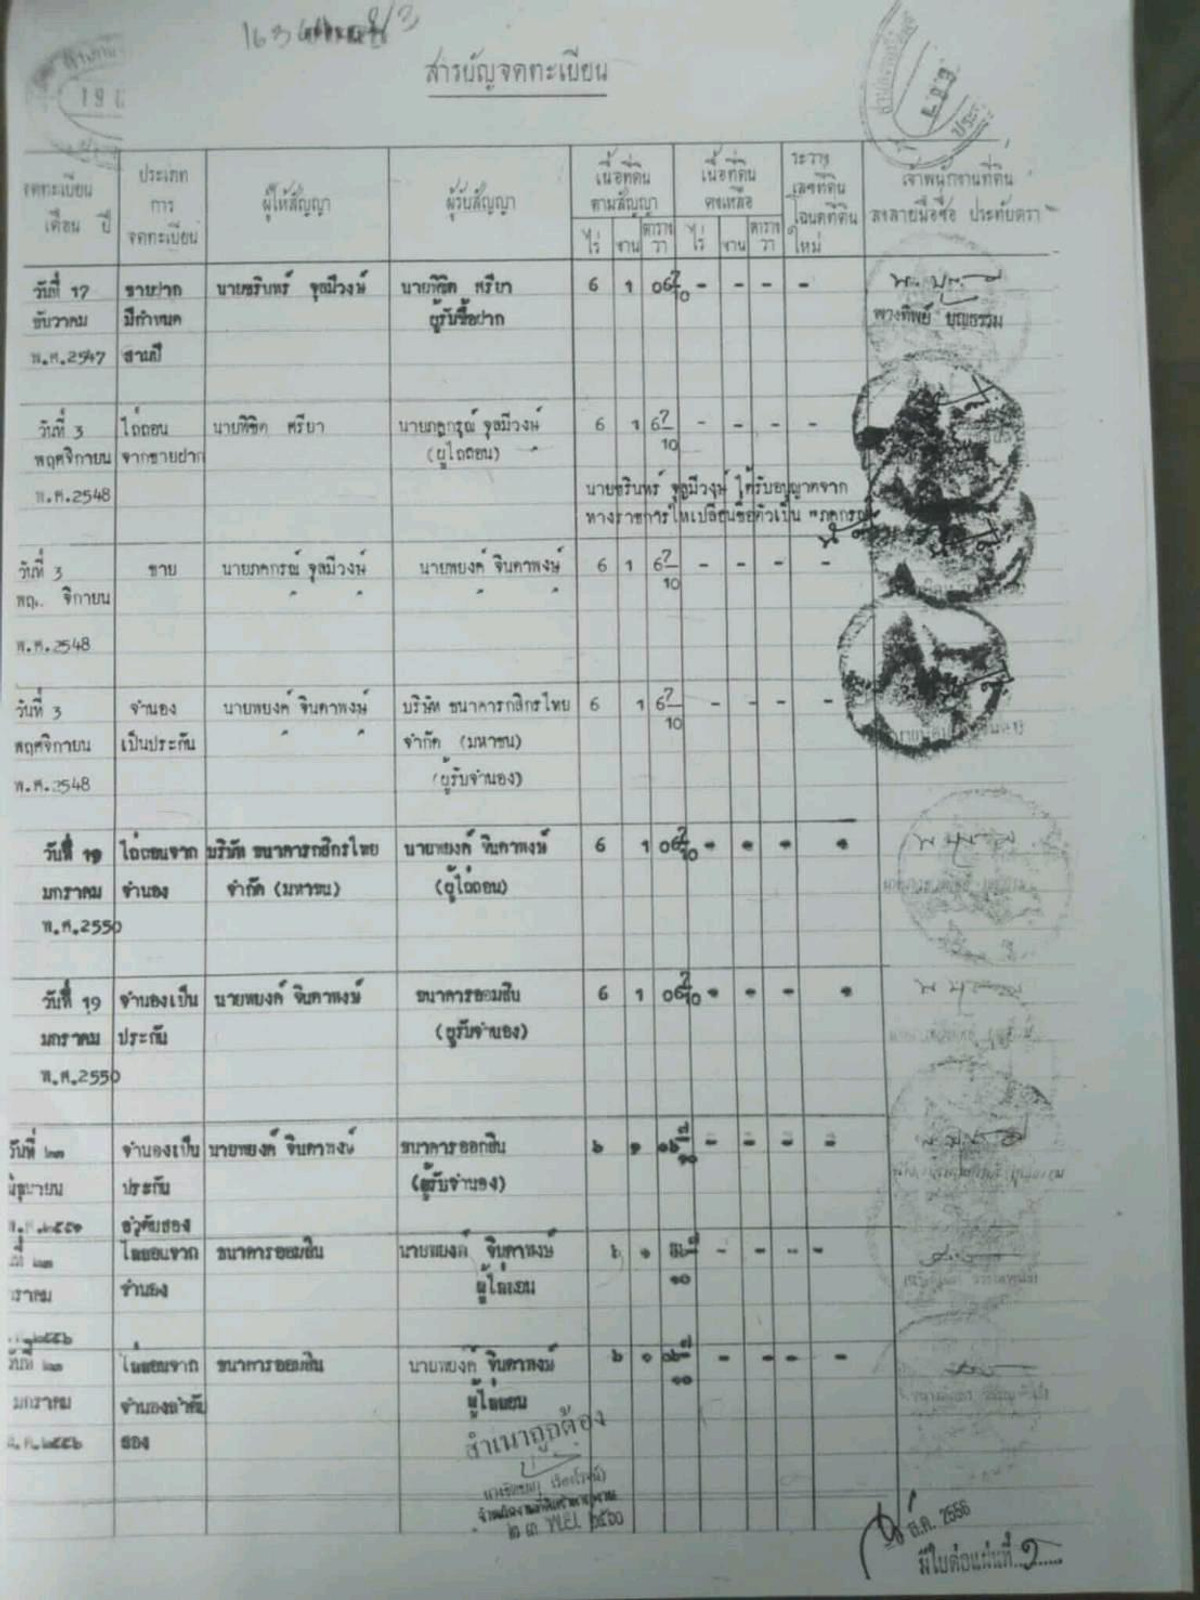 163
สารบัญจดทะเบียน
จดทะเบียน เดือน ปี
ประเภท การ จดทะเบียน
ผู้ให้สัญญา
ผู้รับสัญญา
เนื้อที่ดิน ตามสัญญา
เนื้อที่ดิน คงเหลือ
ระวาง เลขที่ดิน โฉนดที่ดิน ใหม่
เจ้าพนักงานที่ดิน ลงลายมือชื่อ ประทับตรา
ไร่ งาน ตาราง วา ไร่ งาน ตาราง วา
วันที่ 17 ขายฝาก นายชรินทร์ จุลมีวงษ์ นายพิชิต ศรียา 6 1 06 7/10 - - - -
ธันวาคม มีกำหนด ผู้รับซื้อฝาก พวงทิพย์ บุญธรรม
พ.ศ.2547 สามปี
วันที่ 3 ไถ่ถอน นายพิชิต ศรียา นายภคกรณ์ จุลมีวงษ์ 6 1 6 7/10 - - - -
พฤศจิกายน จากขายฝาก (ผู้ไถ่ถอน)
พ.ศ.2548 นายชรินทร์ จุลมีวงษ์ ได้รับอนุญาตจาก
ทางราชการให้เปลี่ยนชื่อตัวเป็น "ภคกรณ์"
วันที่ 3 ขาย นายภคกรณ์ จุลมีวงษ์ นายพยงค์ จินดาพงษ์ 6 1 6 7/10 - - - -
พฤ.. จิกายน
พ.ศ.2548
วันที่ 3 จำนอง นายพยงค์ จินดาพงษ์ บริษัท ธนาคารกสิกรไทย 6 1 6 7/10 - - - -
พฤศจิกายน เป็นประกัน จำกัด (มหาชน)
พ.ศ.2548 (ผู้รับจำนอง)
วันที่ 19 ไถ่ถอนจาก บริษัท ธนาคารกสิกรไทย นายพยงค์ จินดาพงษ์ 6 1 06 7/10 - - - -
มกราคม จำนอง จำกัด (มหาชน) (ผู้ไถ่ถอน)
พ.ศ.2550
วันที่ 19 จำนองเป็น นายพยงค์ จินดาพงษ์ ธนาคารออมสิน 6 1 06 7/10 - - - -
มกราคม ประกัน (ผู้รับจำนอง)
พ.ศ.2550
วันที่ ๒๓ จำนองเป็น นายพยงค์ จินดาพงษ์ ธนาคารออกสิน ๖ ๑ ๐๖ ๗/๑๐ - - - -
มิถุนายน ประกัน (ผู้รับจำนอง)
พ.ศ.๒๕๕๑ ลำดับสอง
ที่ ๒๓ ไถ่ถอนจาก ธนาคารออมสิน นายพยงค์ จินดาพงษ์ ๖ ๑ ๐๖ ๗/๑๐ - - - -
กราคม จำนอง ผู้ไถ่ถอน
๒๕๕๖
วันที่ ๒๓ ไถ่ถอนจาก ธนาคารออมสิน นายพยงค์ จินดาพงษ์ ๖ ๑ ๐๖ ๗/๑๐ - - - -
มกราคม จำนองลำดับ ผู้ไถ่ถอน
พ.ศ.๒๕๕๖ สอง
สำเนาถูกต้อง
๒๓ พ.ย. ๒๕๖๐
ส.ค. 2556
มีใบต่อแผ่นที่ ๑